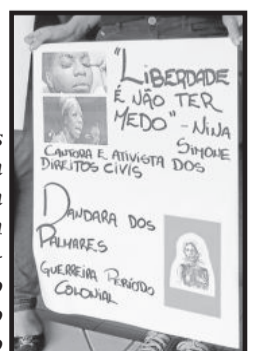 "LIBERDADE
É NÃO TER
MEDO" - NINA
SIMONE
CANTORA E ATIVISTA DOS
DIREITOS CIVIS
DANDARA DOS
PALMARES
GUERREIRA PERÍODO
COLONIAL